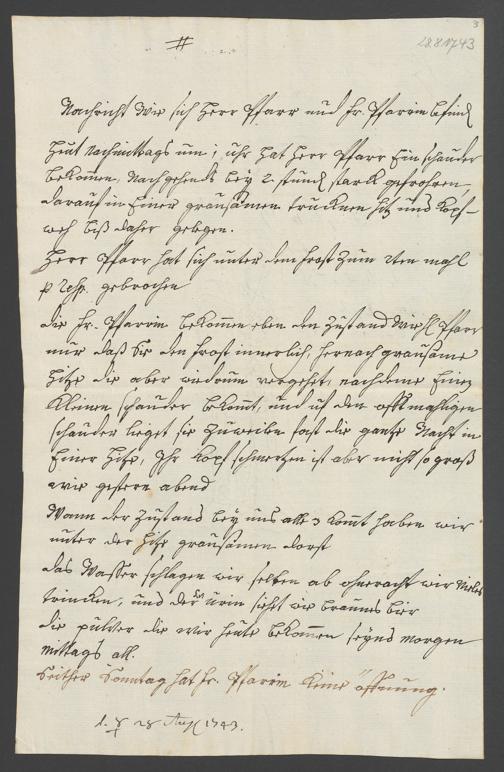 3
28 8 1743
#
Nachricht wie sich Herr Pfarr und fr. Pfarrin befind
Heüt nachmittags um 1 uhr hat Herr Pfarr Ein schauder
bekomen, Nachgehends bey 2 stund starck gefrohren,
darauf in Einer grausamen trucknen Hitz und Kopf-
weh biß daher gelegen.
Herr Pfarr hat sich unter dem frost zum 2ten mahl
gebrochen
die fr. Pfarrin bekomen eben den Zustand wie H Pfarr
nur daß Sie den frost innerlich, hernach grausame
Hitze die aber wiedrum vergehet, nachdeme Einen
Kleinen schauder bekomt, und uf den offtmahligen
schauder lieget sie zuweilen fast die gantze Nacht in
Einer Hitz, Ihr Kopfschmertzen ist aber nicht so groß
wie gestern abend
Wann der Zustand bey uns alle 3 komt haben wir
unter der Hitze grausamen dorst
das Wasser schlagen wir selten ab ohneracht wir vieles
trincken, und der urin sieht wie braunes bier
die pulver die wir heute bekomen seynd morgen
mittags all.
Seither Sonntag hat fr. Pfarrin keine öffnung.
28 Aug 1743.